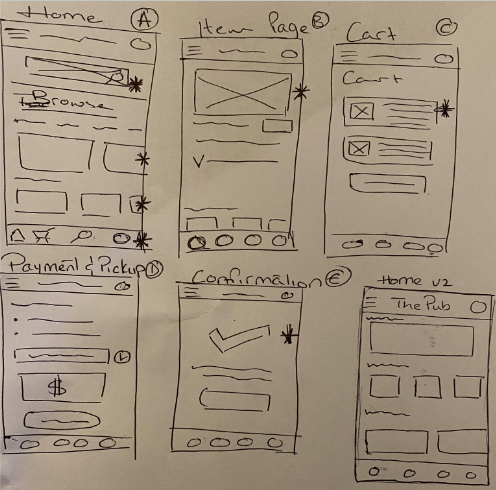 Home A
Item Page B
Cart C
Browse
Cart
Payment & Pickup D
Confirmation E
Home v2
The Pub
$